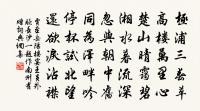 極浦三春草
高樓萬里心
楚山晴靄碧
湘水暮流深
忽與朝中舊
同為澤畔吟
停杯試北望
還欲淚沾襟
賈至岳陽樓宴王員外
貶長沙一題作南州有
贈詞典網集